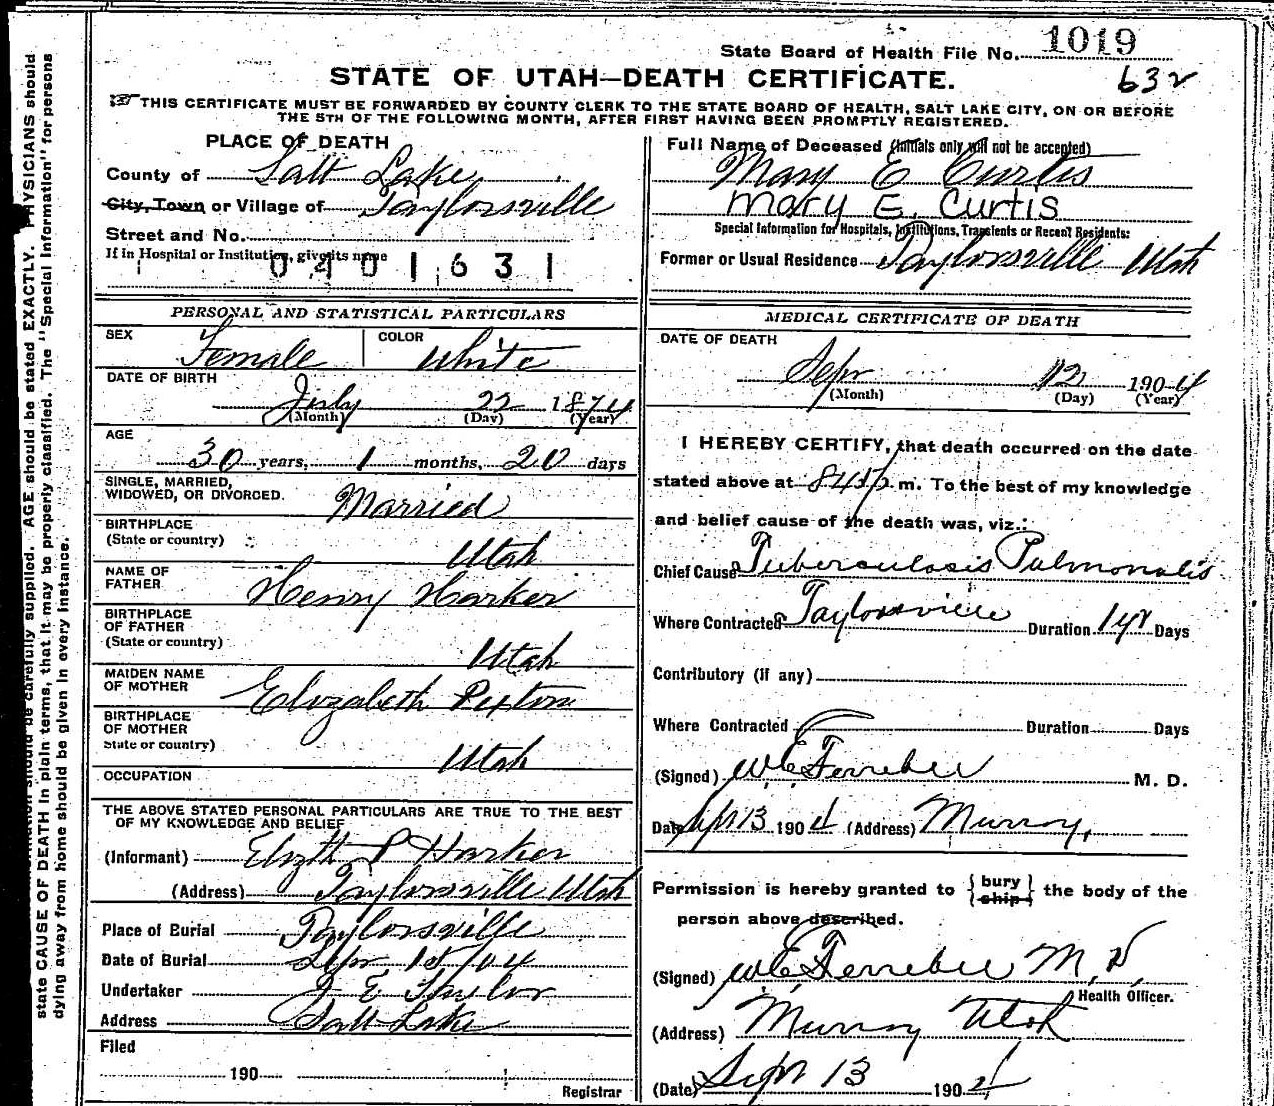 State Board of Health File No. 1019
STATE OF UTAH—DEATH CERTIFICATE.
632
THIS CERTIFICATE MUST BE FORWARDED BY COUNTY CLERK TO THE STATE BOARD OF HEALTH, SALT LAKE CITY, ON OR BEFORE
THE 5TH OF THE FOLLOWING MONTH, AFTER FIRST HAVING BEEN PROMPTLY REGISTERED.
PLACE OF DEATH
County of Salt Lake
City, Town or Village of Taylorsville
Street and No.
If in Hospital or Institution, give its name
0401631
PERSONAL AND STATISTICAL PARTICULARS
SEX Female COLOR White
DATE OF BIRTH
July 22 1874
(Month) (Day) (Year)
AGE
30 years, 1 months, 20 days
SINGLE, MARRIED,
WIDOWED, OR DIVORCED. Married
BIRTHPLACE
(State or country) Utah
NAME OF
FATHER Henry Harker
BIRTHPLACE
OF FATHER
(State or country) Utah
MAIDEN NAME
OF MOTHER Elizabeth Pixton
BIRTHPLACE
OF MOTHER
State or country) Utah
OCCUPATION
THE ABOVE STATED PERSONAL PARTICULARS ARE TRUE TO THE BEST
OF MY KNOWLEDGE AND BELIEF
(Informant) Elizth P Harker
(Address) Taylorsville Utah
Place of Burial Taylorsville
Date of Burial Sepr 15/04
Undertaker J E Taylor
Address Salt Lake
Filed
190
Registrar
Full Name of Deceased (Initials only will not be accepted)
Mary E Curtis
Mary E. Curtis
Special Information for Hospitals, Institutions, Transients or Recent Residents:
Former or Usual Residence Taylorsville Utah
MEDICAL CERTIFICATE OF DEATH
DATE OF DEATH
Sepr 12 1904
(Month) (Day) (Year)
I HEREBY CERTIFY, that death occurred on the date
stated above at 845 p. m. To the best of my knowledge
and belief cause of the death was, viz.:
Chief Cause Tuberculosis Pulmonalis
Where Contracted Taylorsville Duration 1 yr Days
Contributory (If any)
Where Contracted Duration Days
(Signed) W E Ferrebee M. D.
Date Sepr 13 1904 (Address) Murray,
Permission is hereby granted to { bury ship } the body of the
person above described.
(Signed) W E Ferrebee M. D
Health Officer.
(Address) Murray Utah
(Date) Sepr 13 1904
state CAUSE OF DEATH in plain terms, that it may be properly classified. The "Special Information" for persons
dying away from home should be given in every instance.
should be carefully supplied. AGE should be stated EXACTLY. PHYSICIANS should